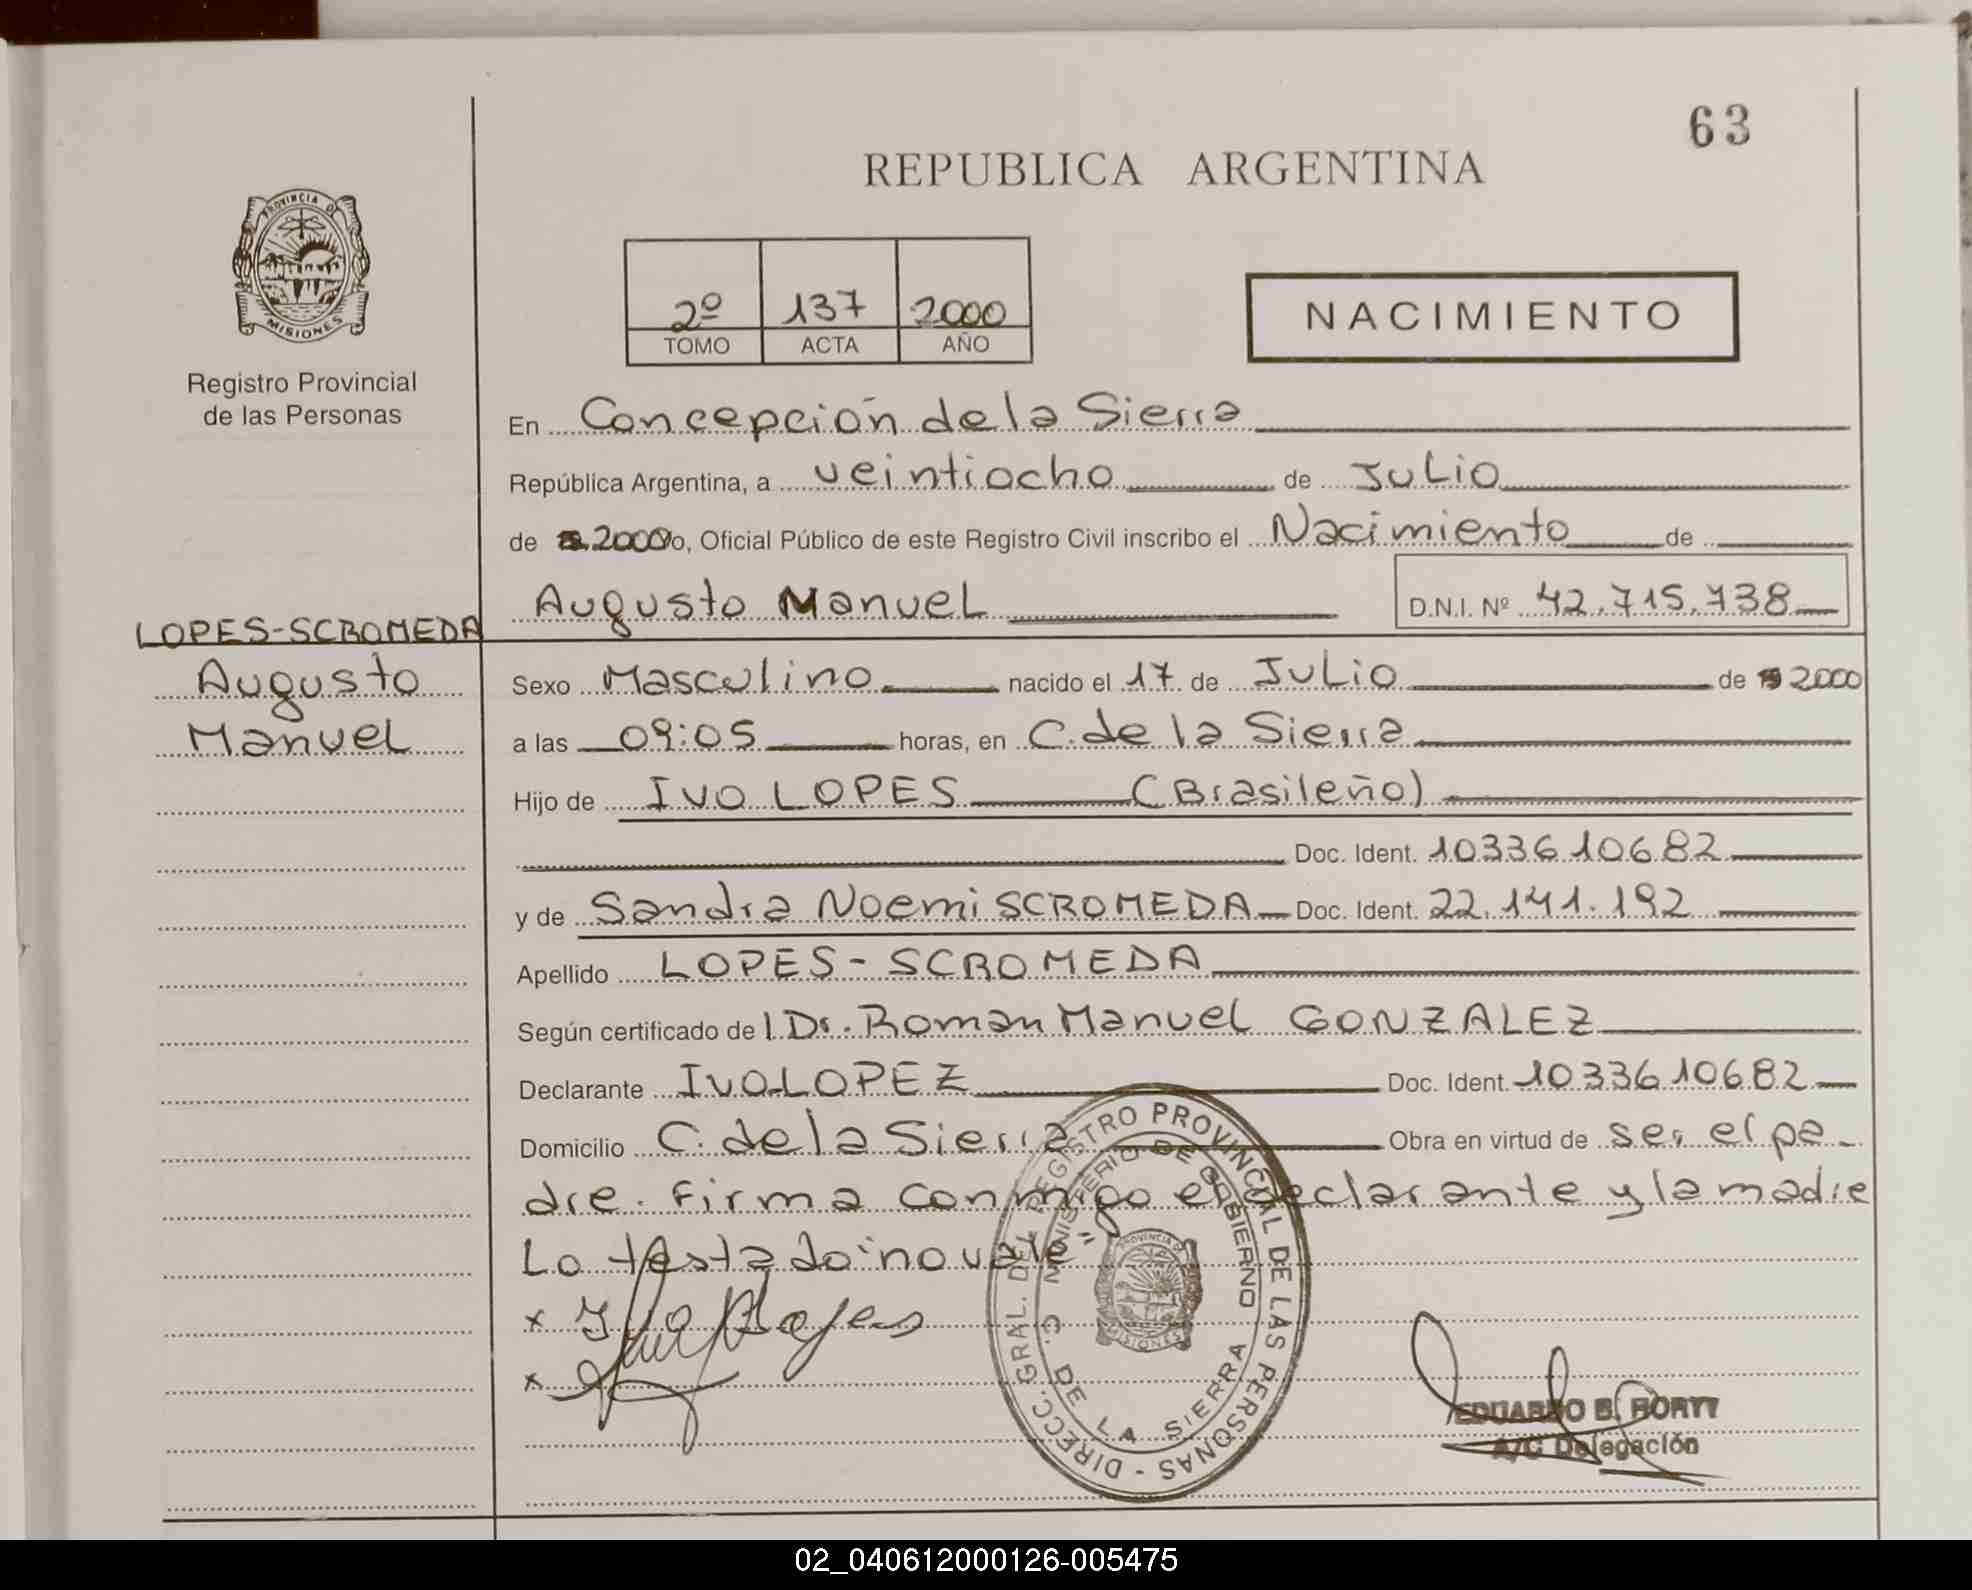 63
REPUBLICA ARGENTINA
PROVINCIA DE
MISIONES
Registro Provincial
de las Personas
2º 137 2000
TOMO ACTA AÑO
NACIMIENTO
En Concepción de la Sierra
República Argentina, a veintiocho de Julio
de 2000 o, Oficial Público de este Registro Civil inscribo el Nacimiento de
Augusto Manuel D.N.I. Nº 42.715.738
LOPES-SCROMEDA
Augusto
Manuel
Sexo Masculino nacido el 17 de Julio de 2000
a las 09:05 horas, en C. de la Sierra
Hijo de Ivo LOPES (Brasileño)
Doc. Ident. 1033610682
y de Sandra Noemi SCROMEDA Doc. Ident. 22.141.192
Apellido LOPES - SCROMEDA
Según certificado de l Dr. Roman Manuel GONZALEZ
Declarante Ivo LOPEZ Doc. Ident. 1033610682
Domicilio C. de la Sierra Obra en virtud de ser el pa-
dre. Firma conmigo el declarante y la madre
Lo testado "no vale"
x
x
DIRECC. GRAL. DEL REGISTRO PROVINCIAL DE LAS PERSONAS -
MINISTERIO DE GOBIERNO
C. DE LA SIERRA
PROVINCIA DE
MISIONES
EDUARDO
A/C Delegación
02_040612000126-005475